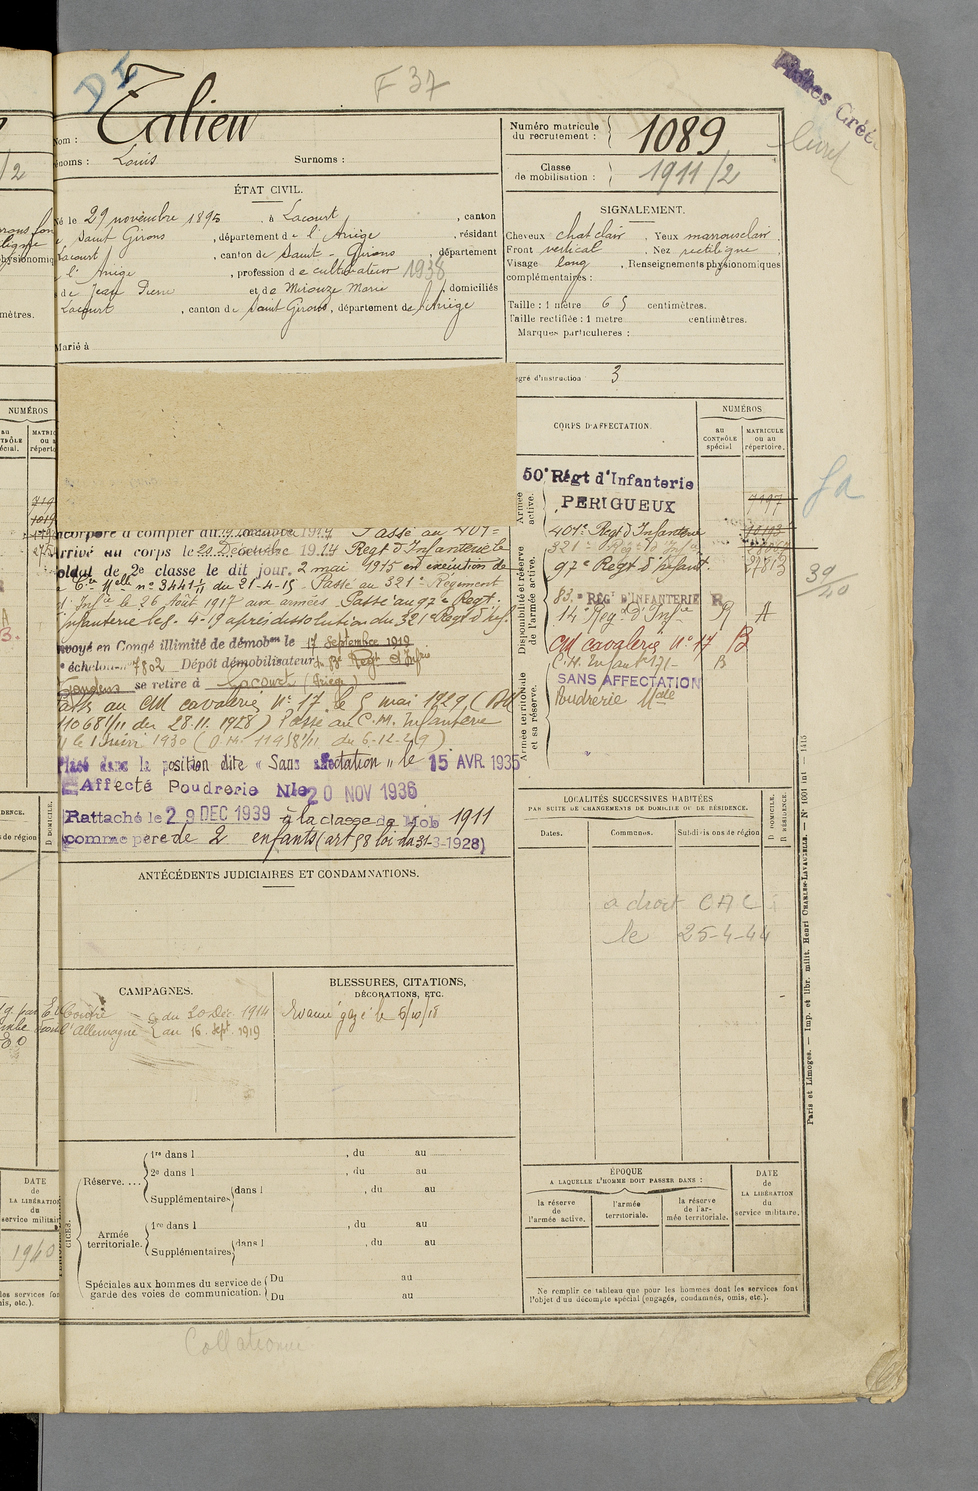 DI
F 37
Fiches
livret
Nom : Talieu
Prénoms : Louis Surnoms :
Numéro matricule
du recrutement : 1089
Classe
de mobilisation : 1911/2
ÉTAT CIVIL.
Né le 29 novembre 1895, à Lacourt, canton
de Saint Girons, département de l'Ariège, résidant
Lacourt, canton de Saint-Girons, département
de l'Ariège, profession de cultivateur 1938
de Jean Pierre et de Mirouze Marie, domiciliés
Lacourt, canton de Saint Girons, département de l'Ariège
Marié à
SIGNALEMENT.
Cheveux chat clair, Yeux marrons clair,
Front vertical, Nez rectiligne,
Visage long, Renseignements physionomiques
complémentaires :
Taille : 1 mètre 65 centimètres.
Taille rectifiée : 1 mètre centimètres.
Marques particulières :
Degré d'instruction 3
CORPS D'AFFECTATION.
NUMÉROS
au
CONTRÔLE
spécial
MATRICULE
ou au
répertoire.
Armée
active.
50e Régt d'Infanterie
PERIGUEUX
401e Regt d'Infanterie
321e Regt d'Infie
97e Regt d'Infant.
27813
Disponibilité et réserve
de l'armée active.
83e RÉGt D'INFANTERIE R
14e Regnt d'Infie R A
CM cavalerie No 17 B
C.M. Infant B
SANS AFFECTATION
Poudrerie Nale
Armée territoriale
et sa réserve.
39/40
Incorporé à compter du décembre 1914 Passé au 401e
Arrivé au corps le 20 Décembre 1914 Regt d'Infanterie le
soldat de 2e classe le dit jour. 2 mai 1915 en exécution de
la Cre Mlle no 3441 1/11 du 21-4-15 Passé au 321e Régiment
d'Infie le 26 Août 1917 aux armées Passé au 97e Regt
Infanterie le 8-4-19 après dissolution du 321e Regt d'Inf.
Envoyé en Congé illimité de démobon le 17 Septembre 1919
échelon no 7802 Dépôt démobilisateur Regt d'Infie
se retire à Lacourt (Ariège)
Passé au CM cavalerie No 17 le 5 mai 1929 (DM
11068 1/11 du 28.11.1928) Passé au C.M. Infanterie
le 1 Juin 1930 (D.M. 11958 1/11 du 6-12-29)
Placé dans la position dite « Sans affectation » le 15 AVR. 1935
Affecté Poudrerie Nle 20 NOV 1936
Rattaché le 29 DEC 1939 à la classe de Mob 1911
comme père de 2 enfants (art 58 loi du 31-3-1928)
ANTÉCÉDENTS JUDICIAIRES ET CONDAMNATIONS.
LOCALITÉS SUCCESSIVES HABITÉES
PAR SUITE DE CHANGEMENTS DE DOMICILE OU DE RÉSIDENCE.
Dates. Communes. Subdivisions de région
D DOMICILE.
R RÉSIDENCE.
a droit CAC
le 25-4-44
CAMPAGNES.
Contre du 20 Déc 1914
l'Allemagne au 16 Sept. 1919
BLESSURES, CITATIONS,
DÉCORATIONS, ETC.
Evacué gazé le 6/10/18
Réserve....
1re dans l , du au
2e dans l , du au
Supplémentaires dans l , du au
Armée
territoriale.
1re dans l , du au
Supplémentaires dans l , du au
Spéciales aux hommes du service de
garde des voies de communication.
Du au
Du au
ÉPOQUE
A LAQUELLE L'HOMME DOIT PASSER DANS :
la réserve
de
l'armée active.
l'armée
territoriale.
la réserve
de l'ar-
mée territoriale.
DATE
de
LA LIBÉRATION
du
service militaire.
Ne remplir ce tableau que pour les hommes dont les services font
l'objet d'un décompte spécial (engagés, condamnés, omis, etc.).
Paris et Limoges. — Imp. et libr. milit. Henri CHARLES-LAVAUZELLE. — No 1001 int — 1415
Collationné
NUMÉROS
DATE
de
LA LIBÉRATION
du
service militaire
1940